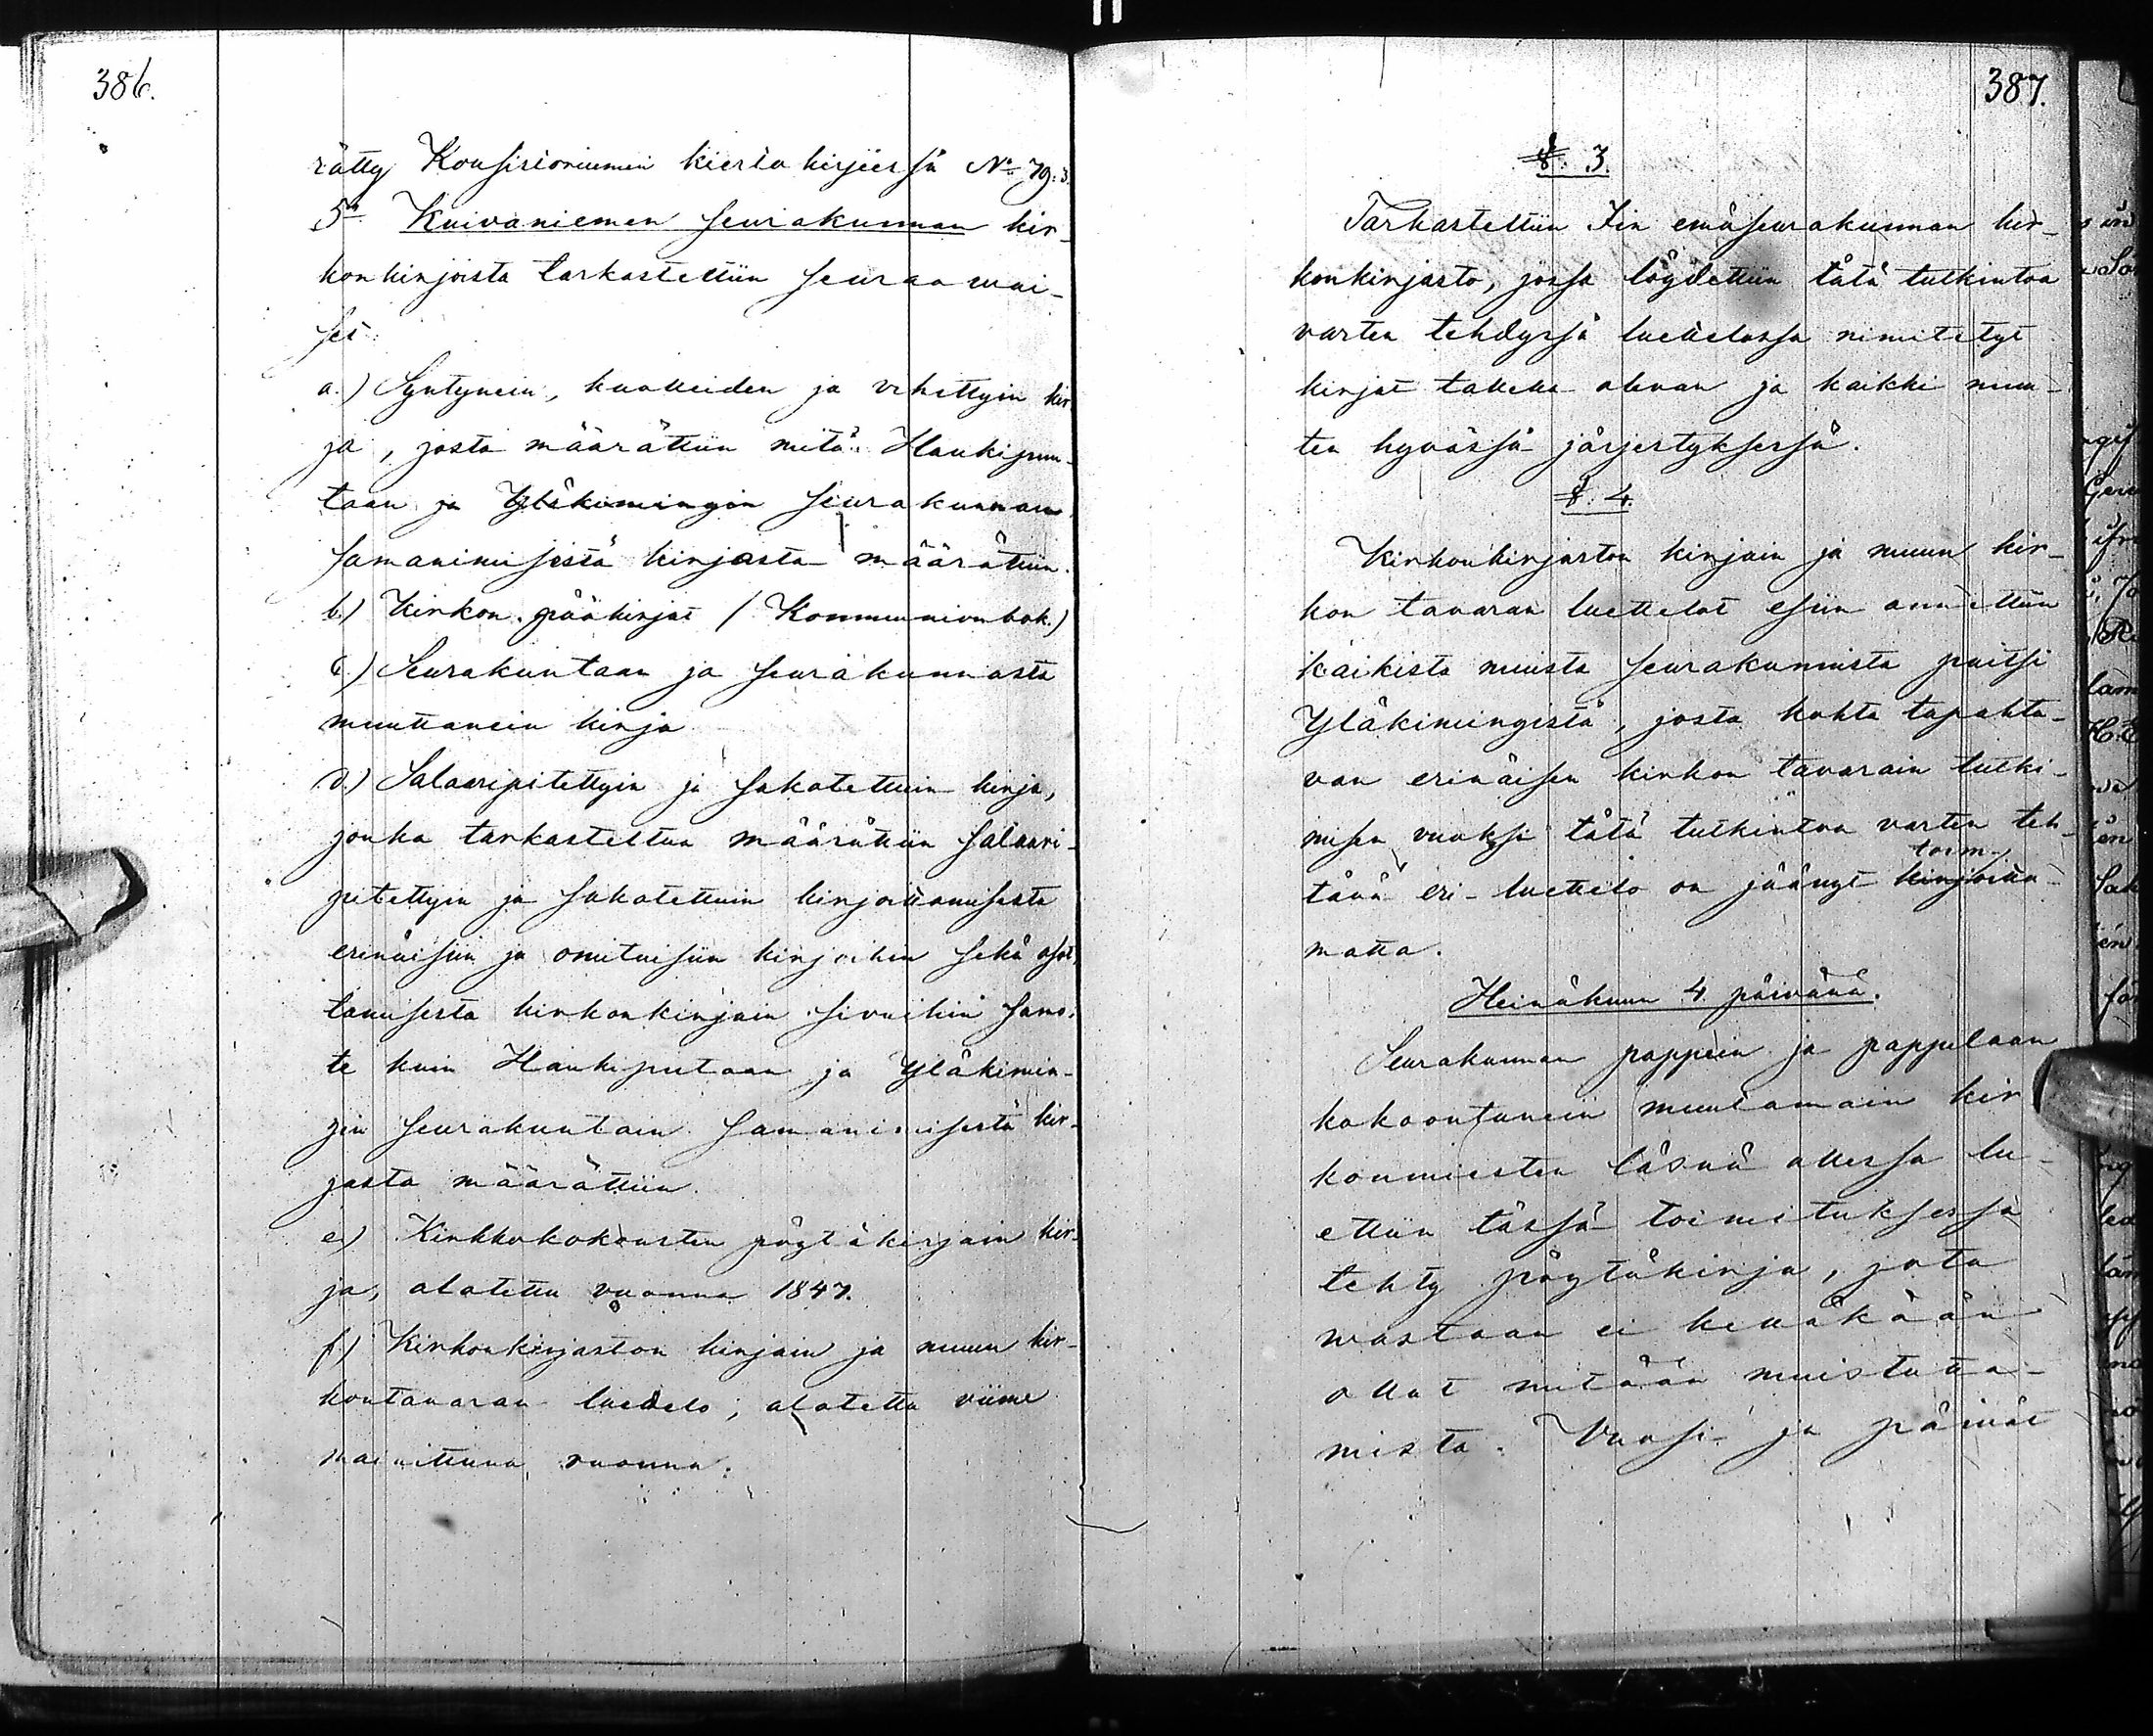 386.
rätty Konsistoriumin kiertokirjeessä No 79:3.
5o Kuivaniemen seurakunnan kir-
konkirjoista tarkastettiin seuraawai-
set:
a.) Syntynein, kuolleiden ja vihittyin kir
ja, josta määrättiin mitä Haukipuu-
taan ja Yläkimingin seurakunnan
samanimisestä kirjasta määrättiin.
b.) Kirkon pääkirjat (Kommunionbok.)
c.) Seurakuntaan ja seurakunnasta
muuttanein kirja
d.) Salaaripitettyin ja sakotettuin kirja,
jonka tarkastettua määrättiin salaari-
pitettyin ja sakotettuin kirjoittamisesta
erinäisiin ja omituisiin kirjoihin sekä osot-
tamisesta kirkonkirjain sivuihin samo-
te kuin Haukiputaan ja Yläkimin-
gin seurakuntain samanimisestä kir-
jasta määrättiin.
e.) Kirkkokokousten pöytäkirjain kir-
ja, alotettu vuonna 1847.
f.) Kirkonkirjaston kirjain ja muun kir-
kontavaran luedelo; alotettu viime
mainittuna vuonna.
387.
§. 3.
Tarkastettiin Iin emäseurakunnan kir-
konkirjasto, jossa löydettiin tätä tutkintoa
varten tehdyssä luettelossa nimitetyt
kirjat tallella olevan ja kaikki muu-
ten hyvässä järjestyksessä.
§. 4.
Kirkonkirjaston kirjain ja muun kir-
kon tavaran luettelot esiin annettiin
kaikista muista seurakunnista paitsi
Yläkimingistä, josta kohta tapahtu-
van erinäisen kirkon tavarain tutki-
misen vuoksi tätä tutkintoa varten teh-
toim-
tävä eri-luettelo on jäänyt kirjoitta-
matta.
Heinäkuun 4 päivänä.
Seurakunnan pappein ja pappilaan
kokoontunein muutamain kir
konmiesten läsnä ollessa lu-
ettiin tässä toimituksessa
tehty pöytäkirja, jota
wastaan ei kelläkään
ollut mitään muistutta-
mista. Vuosi ja päivät